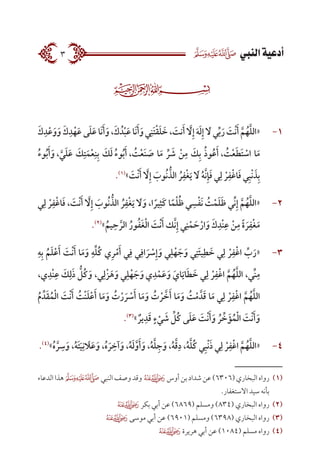 أدعية النبي ﷺ ٣
بِسْمِ اللَّهِ الرَّحْمَنِ الرَّحِيمِ
١- «اللَّهُمَّ أَنْتَ رَبِّي لا إِلَهَ إِلَّا أَنْتَ، خَلَقْتَنِي وَأَنَا عَبْدُكَ، وَأَنَا عَلَى عَهْدِكَ وَوَعْدِكَ
مَا اسْتَطَعْتُ، أَعُوذُ بِكَ مِنْ شَرِّ مَا صَنَعْتُ، أَبُوءُ لَكَ بِنِعْمَتِكَ عَلَيَّ، وَأَبُوءُ
بِذَنْبِي فَاغْفِرْ لِي فَإِنَّهُ لا يَغْفِرُ الذُّنُوبَ إِلَّا أَنْتَ»(١).
٢- «اللَّهُمَّ إِنِّي ظَلَمْتُ نَفْسِي ظُلْمًا كَثِيرًا، وَلا يَغْفِرُ الذُّنُوبَ إِلَّا أَنْتَ، فَاغْفِرْ لِي
مَغْفِرَةً مِنْ عِنْدِكَ وَارْحَمْنِي إِنَّك أَنْتَ الْغَفُورُ الرَّحِيمُ»(٢).
٣- «رَبِّ اغْفِرْ لِي خَطِيئَتِي وَجَهْلِي وَإِسْرَافِي فِي أَمْرِي كُلِّهِ وَمَا أَنْتَ أَعْلَمُ بِهِ
مِنِّي، اللَّهُمَّ اغْفِرْ لِي خَطَايَايَ وَعَمْدِي وَجَهْلِي وَهَزْلِي، وَكُلُّ ذَلِكَ عِنْدِي،
اللَّهُمَّ اغْفِرْ لِي مَا قَدَّمْتُ وَمَا أَخَّرْتُ وَمَا أَسْرَرْتُ وَمَا أَعْلَنْتُ أَنْتَ الْمُقَدِّمُ
وَأَنْتَ الْمُؤَخِّرُ وَأَنْتَ عَلَى كُلِّ شَيْءٍ قَدِيرٌ»(٣).
٤- «اللَّهُمَّ اغْفِرْ لِي ذَنْبِي كُلَّهُ، دِقَّهُ، وَجِلَّهُ، وَأَوَّلَهُ، وَآخِرَهُ، وَعَلانِيَتَهُ وَسِرَّهُ»(٤).
(١) رواه البخاري (٦٣٠٦) عن شداد بن أوس رضي الله عنه وقد وصف النبي ﷺ هذا الدعاء
بأنه سيد الاستغفار.
(٢) رواه البخاري (٨٣٤) ومسلم (٦٨٦٩) عن أبي بكر رضي الله عنه
(٣) رواه البخاري (٦٣٩٨) ومسلم (٦٩٠١) عن أبي موسى رضي الله عنه
(٤) رواه مسلم (١٠٨٤) عن أبي هريرة رضي الله عنه